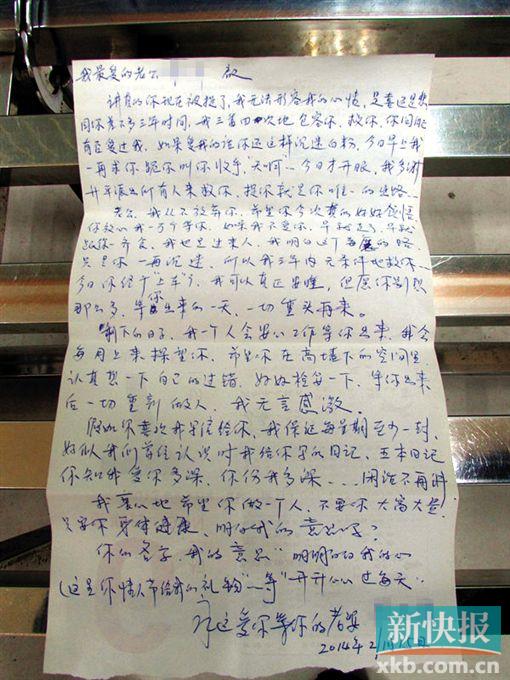 我最爱的老公 启
讲真的你现在被捉了,我无法形容我的心情,是喜还是悲
同你差不多三年时间,我三番四次地包容你、救你、你问
有否爱过我,如果爱我的话你还这样沉迷白粉,今日早上我
一再求你跪你叫你收手,天啊…今日才开眼,我多谢
所有人来救你,捉你就是你唯一的出路…
老公,我从不放弃你,希望你今次真的好好
你放心我一万个等你,如果我不爱你,早就走了,早就
我也是过来人,我明白这个的
只是你一再沉迷,所以我三年内无条件地救你…
今日你终于"上车"了,我可以真正安睡,但愿你别想
那么多,等你出来的一天,一切重头再来。
剩下的日子,我一个人会安心工作等你出来,我会
每月上来探望你,希望你在高墙下的空间里
认真想一下自己的过错,好好检每一下,等你出来
后一切重新做人,我无言感激。
假如你喜欢我写信给你,我保证每星期至少一封,
好似我们前往认识时我给你写的日记,五本日记
你知我爱你多深,你伤我多深……闲话不再讲
我衷心地希望你做一个人,不要你大富大贵
只要你身体健康,明白我的意思吗?
你的名字,我的意思"明明白白我的心
(这是你情人节给我的礼物"…等"开开心心过每天"
永远爱你等你的老婆
2014年2月15日
新快报
xkb.com.cn